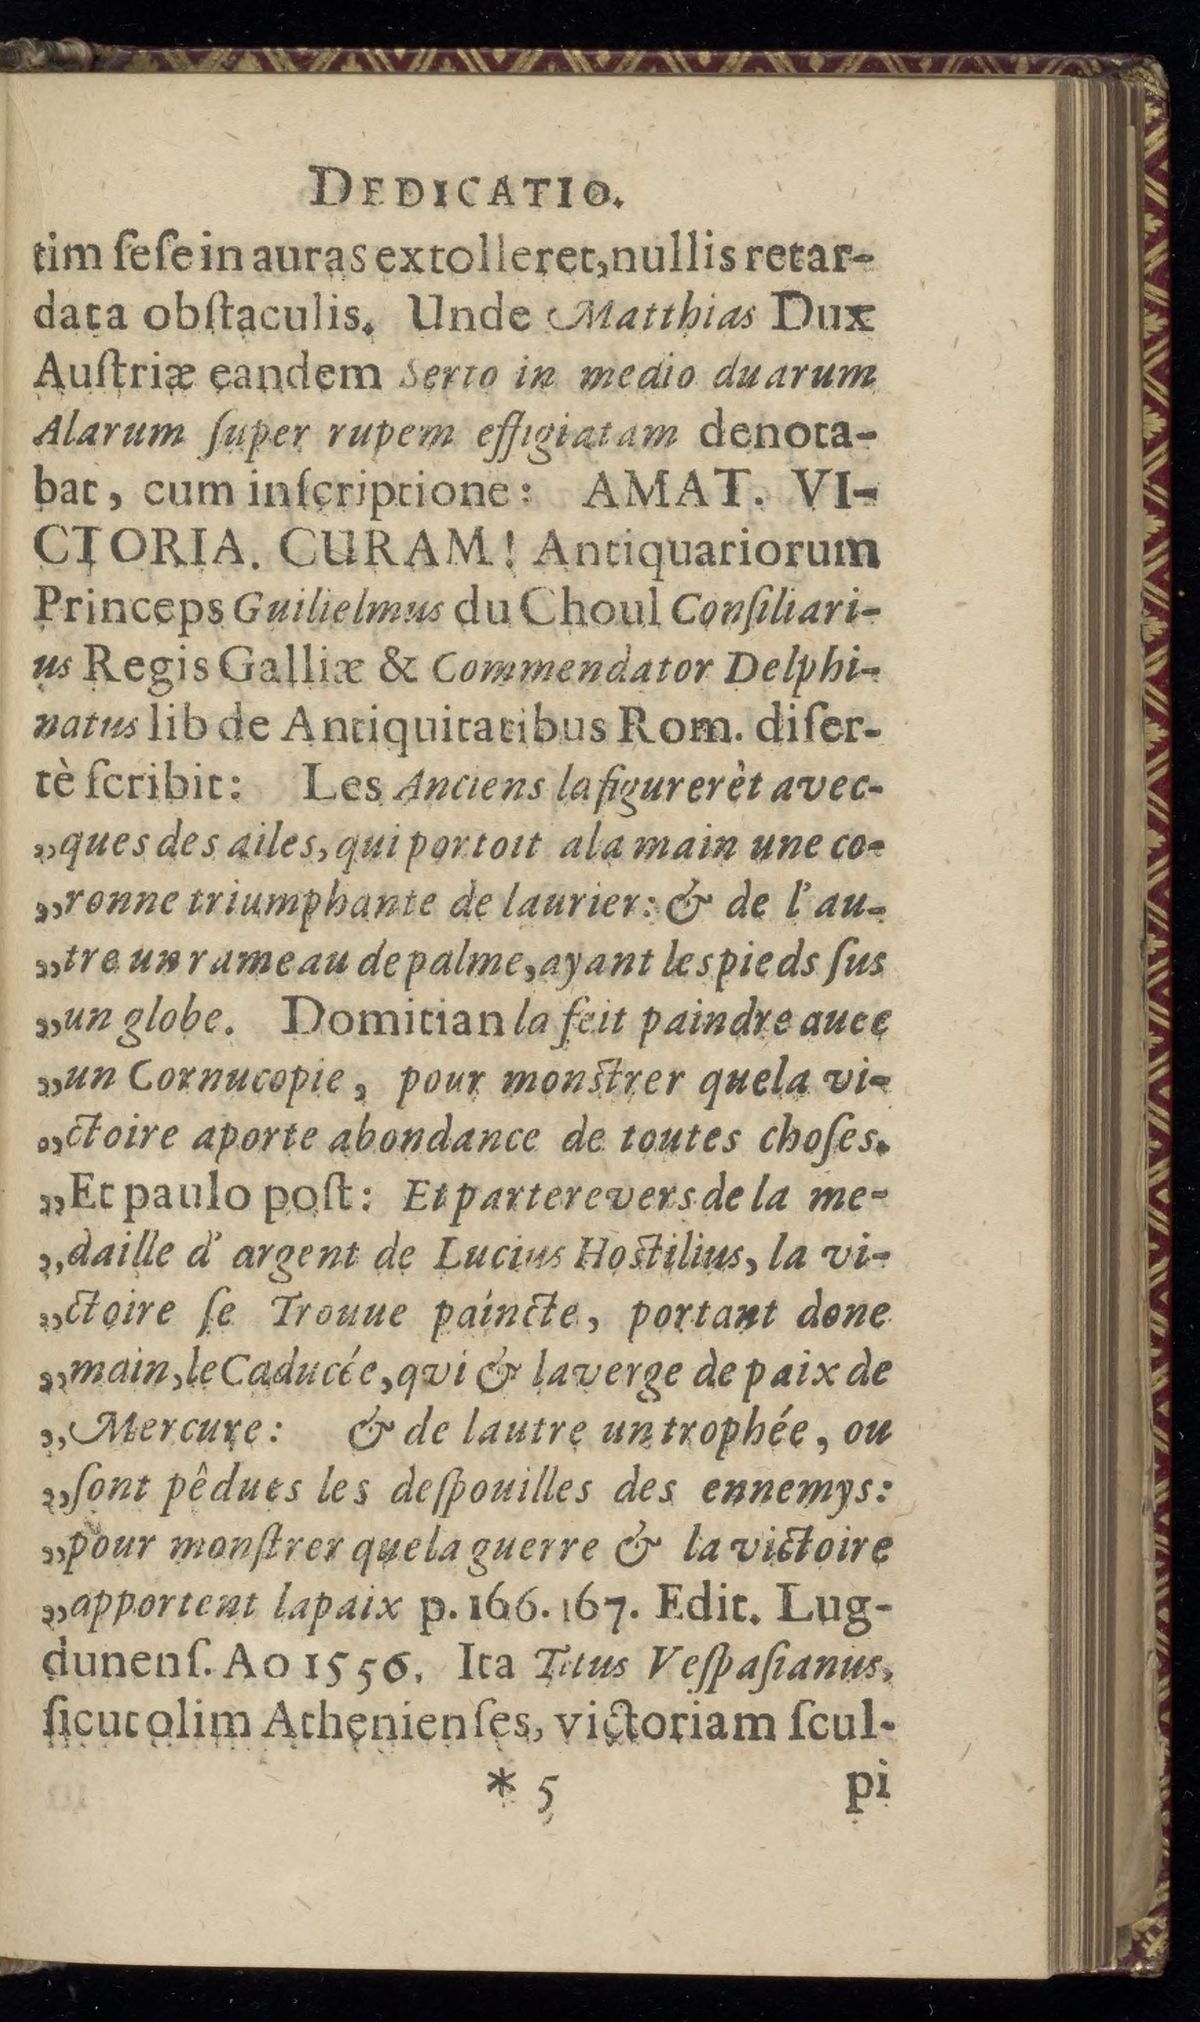 DEDICATIO.
tim ſeſe in auras extolleret, nullis retar-
data obſtaculis. Unde Matthias Dux
Auſtriæ eandem Serto in medio duarum
Alarum ſuper rupem effigiatam denota-
bat, cum inſcriptione: AMAT. VI-
CTORIA. CURAM! Antiquariorum
Princeps Guilielmus du Choul Conſiliari-
us Regis Galliæ & Commendator Delphi-
natus lib de Antiquitatibus Rom. diſer-
tè ſcribit: Les Anciens la figurerèt avec-
„ques des ailes, qui portoit a la main une co-
„ronne triumphante de laurier: & de l'au-
„tre un rameau de palme, ayant les pieds ſus
„un globe. Domitian la feit paindre auec
„un Cornucopie, pour monſtrer que la vi-
„ctoire aporte abondance de toutes choſes.
„Et paulo poſt: Et par tere vers de la me-
„daille d' argent de Lucius Hoſtilius, la vi-
„ctoire ſe Trouue paíncte, portant done
„main, le Caducée, qvi & la verge de paix de
„Mercure: & de lautre un trophée, ou
„ſont pêdues les deſpouilles des ennemys:
„pour monſtrer que la guerre & la victoire
„apportent la paix p. 166. 167. Edit. Lug-
dunenſ. Ao 1556. Ita Titus Veſpaſianus,
ſicut olim Athenienſes, victoriam ſcul-
* 5 pi